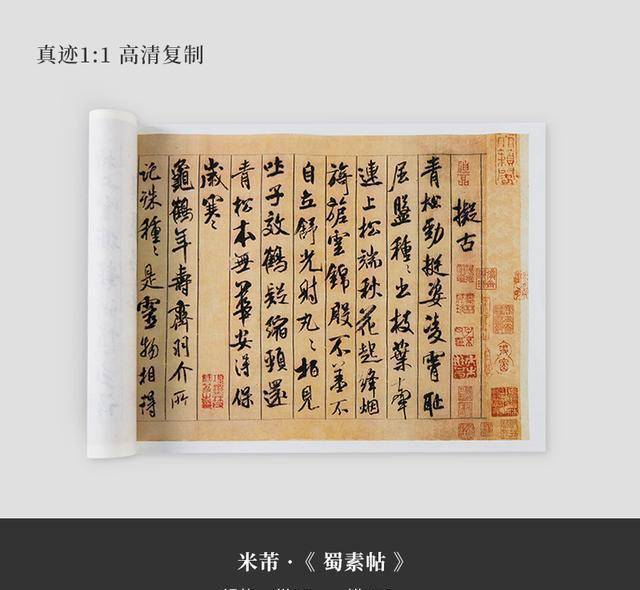 真迹1:1 高清复制
擬古
青松勁挺姿凌霄恥
屈盤種々出枝葉牽
連上松端秋花起絳烟
旖旎雲錦殷不羞不
自立舒光射丸々柏見
吐子效鶴疑縮頸還
青松本無華安得保
歲寒
龜鶴年壽齊羽介所
託殊種々是靈物相得
米芾·《 蜀素帖 》